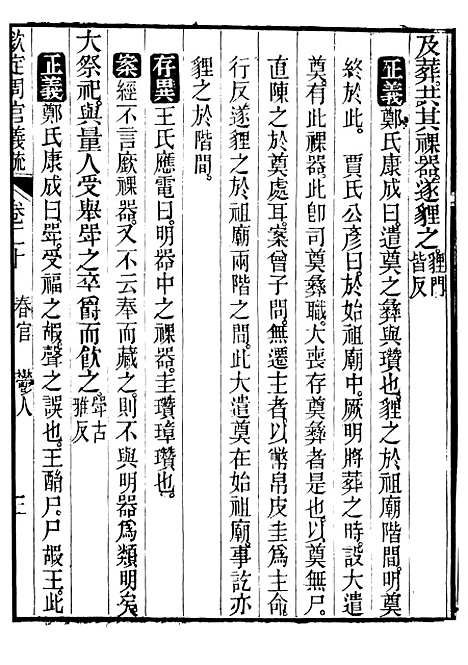 及葬共其祼器遂貍之貍門皆反
正義鄭氏康成曰遣奠之彝與瓚也貍之於祖廟階間明奠
終於此 賈氏公彦曰於始祖廟中厥明將葬之時設大遣
奠有此祼器此卽司奠彝職大喪存奠彝者是也以奠無尸
直陳之於奠處耳案曾子問無遷主者以幣帛皮圭為主命
行反遂貍之於祖廟兩階之間此大遣奠在始祖廟事訖亦
貍之於階間
存異王氏應電曰明器中之祼器圭瓚璋瓚也
案經不言廞祼器又不云奉而藏之則不與明器為類明矣
大祭祀與量人受舉斝之卒爵而飲之斝古雅反
正義鄭氏康成曰斝受福之嘏聲之誤也王酳尸尸嘏王此
欽定周官義疏 卷二十 春官 鬱人 三